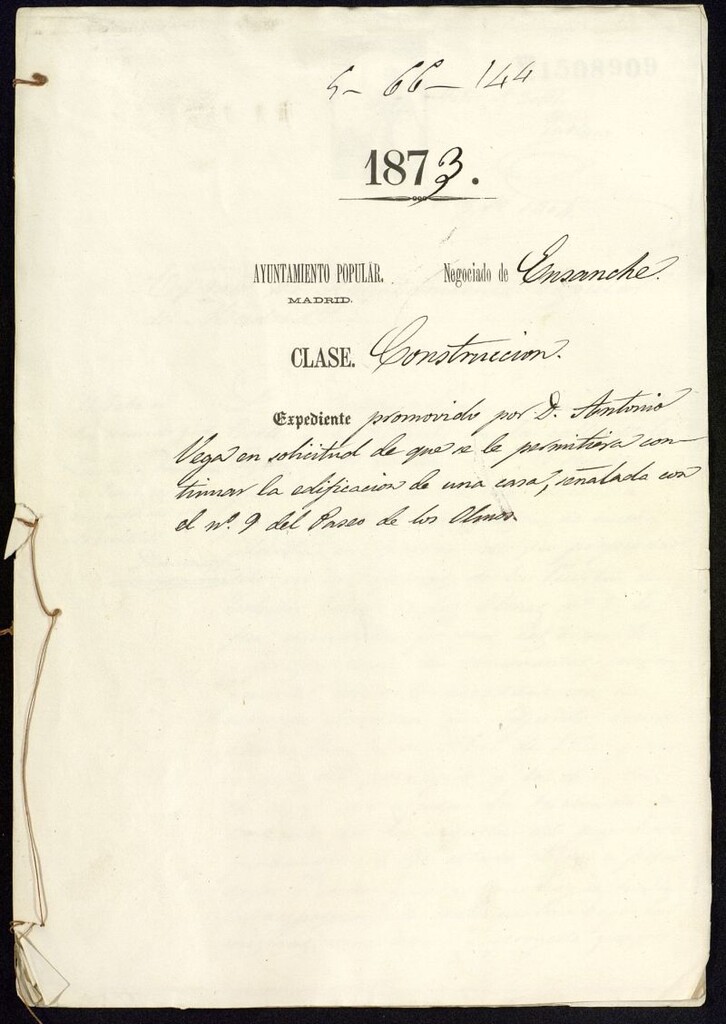 5-66-144
1873.
AYUNTAMIENTO POPULAR. Negociado de Ensanche.
MADRID.
CLASE. Construccion.
Expediente promovido por D. Antonio
Vega en solicitud de que se le permitiera con-
tinuar la edificacion de una casa, señalada con
el nº. 9 del Paseo de los Olmos.